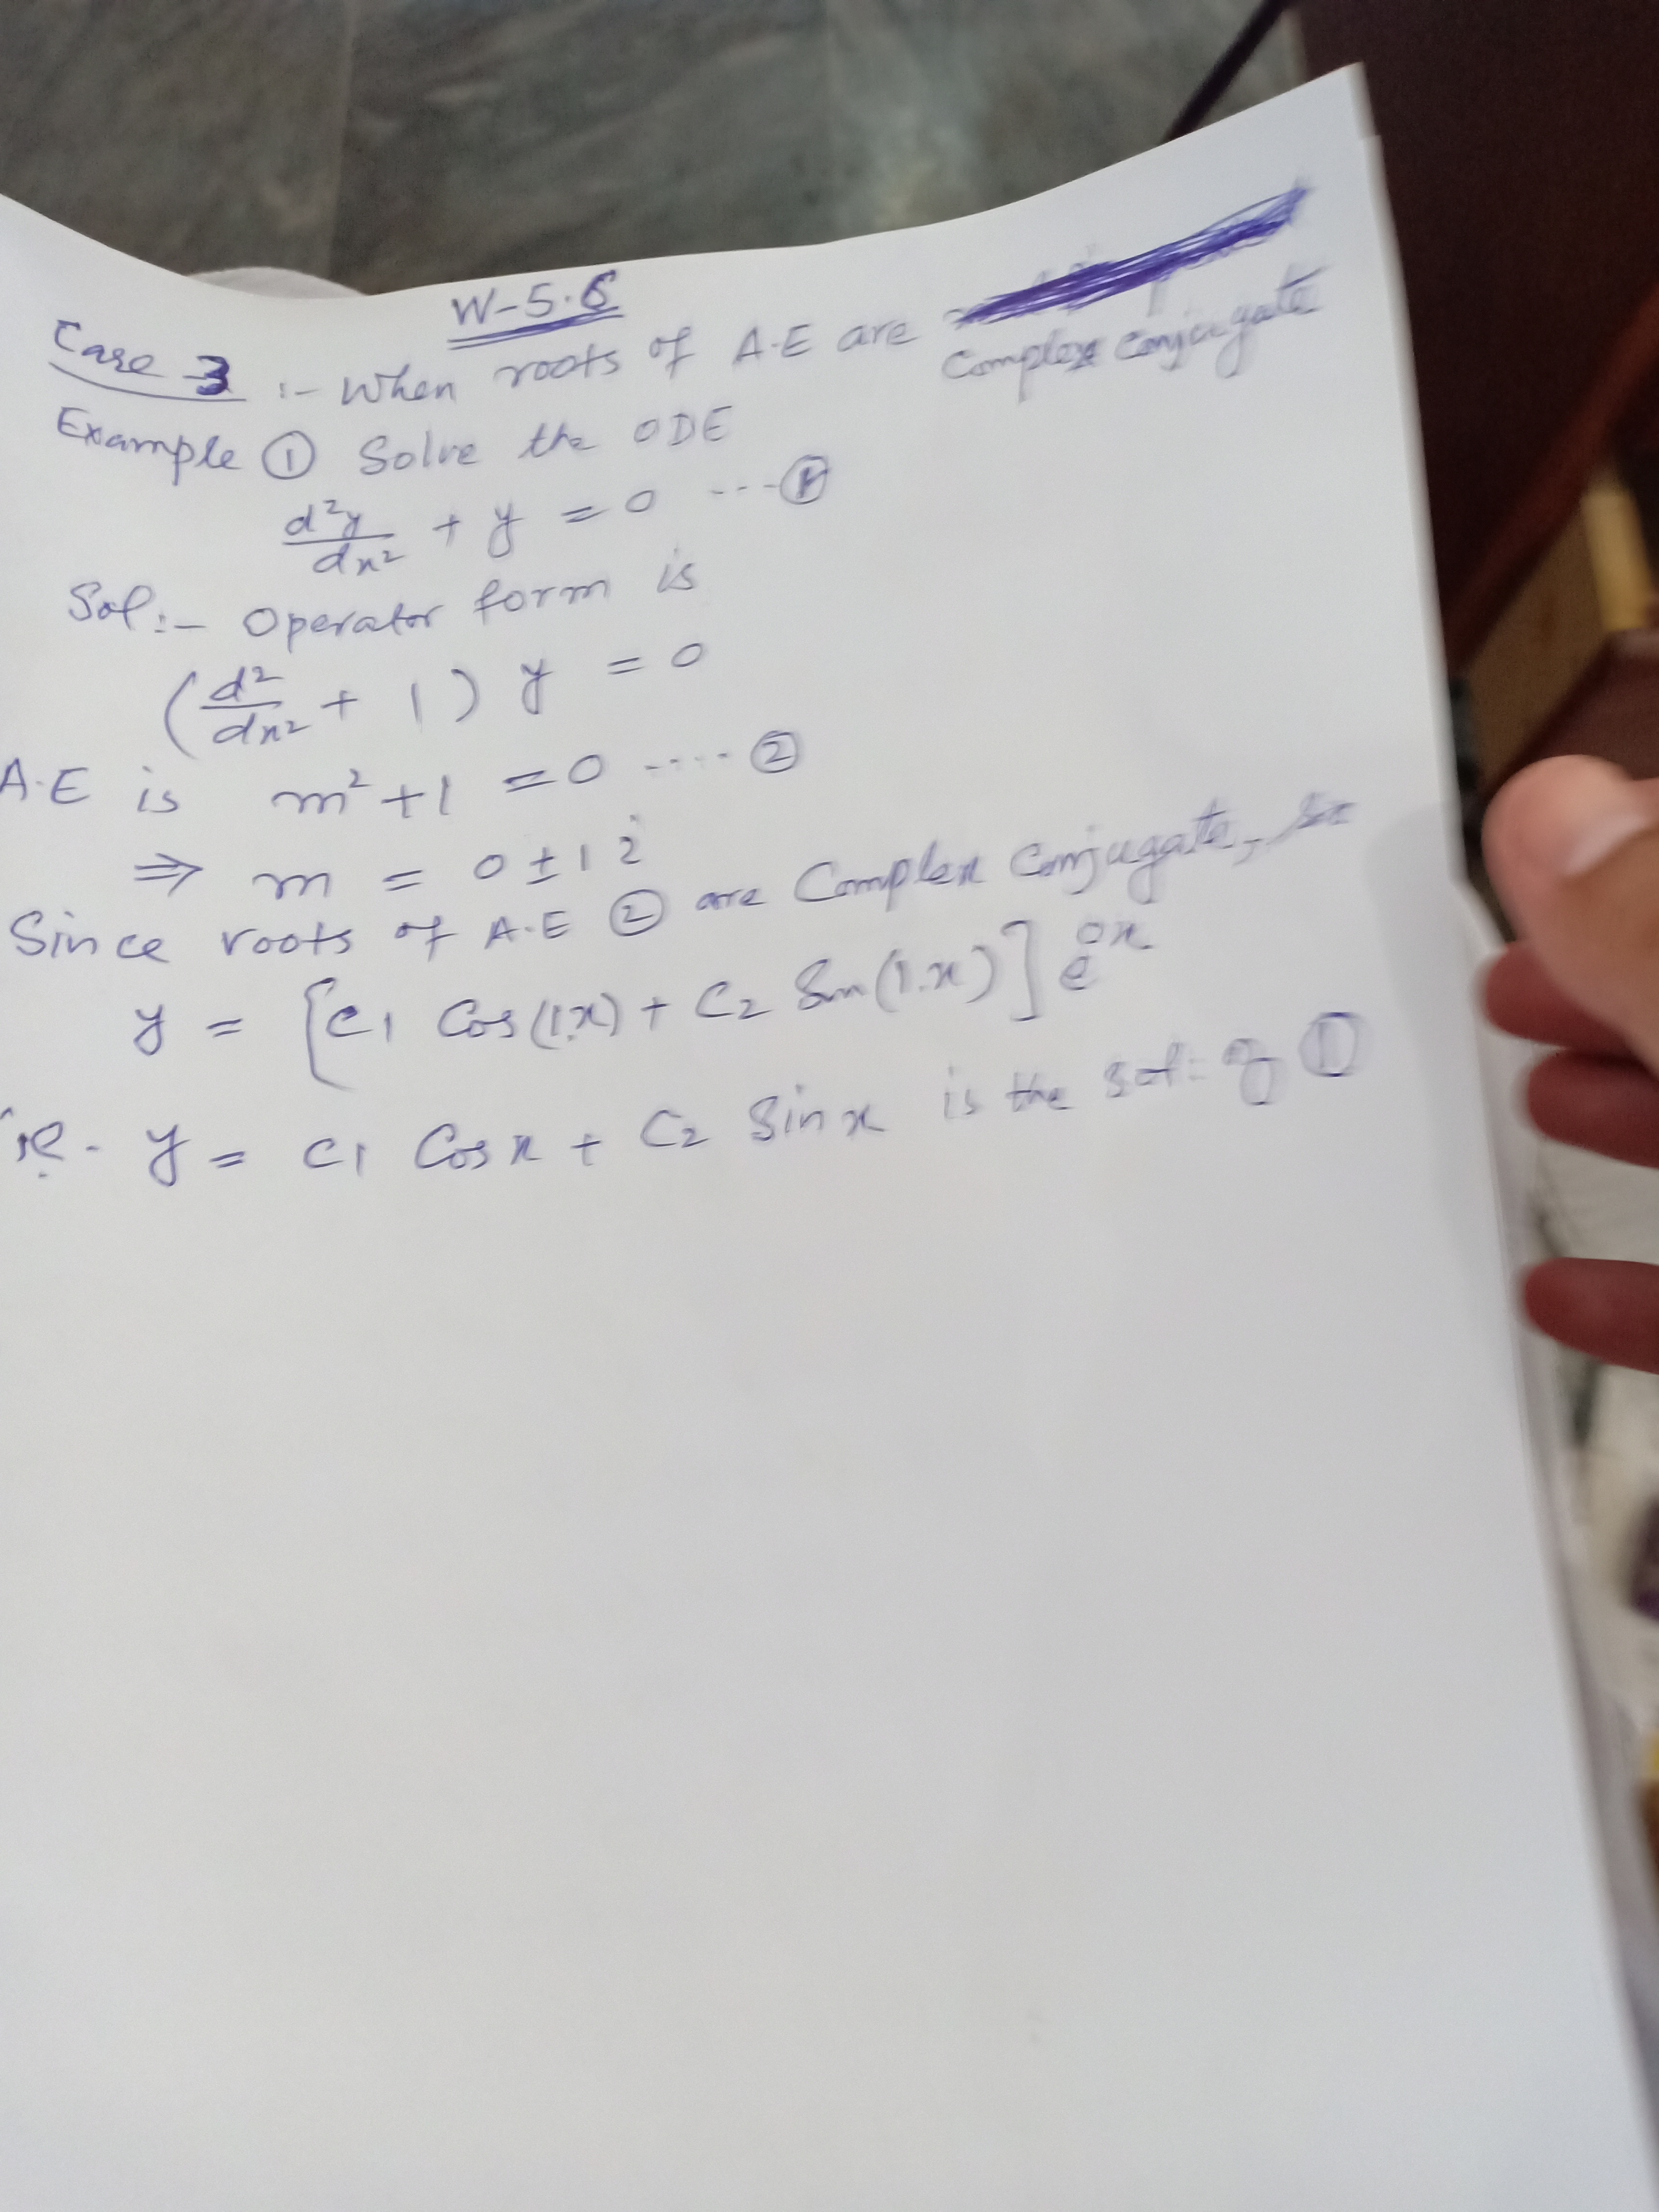 W-5.6
Case 3 :- When roots of A.E are Complex Conjugate
Example ① Solve the ODE
d²y/dx² + y = 0 ---①
Sol:- Operator form is
(d²/dx² + 1) y = 0
A.E is m² + 1 = 0 ---- ②
⇒ m = 0 ± 1 i
Since roots of A.E ② are Complex Conjugate, so
y = [C1 Cos(1.x) + C2 Sin(1.x)] e^0x
i.e. y = C1 Cos x + C2 Sin x is the sol: of ①